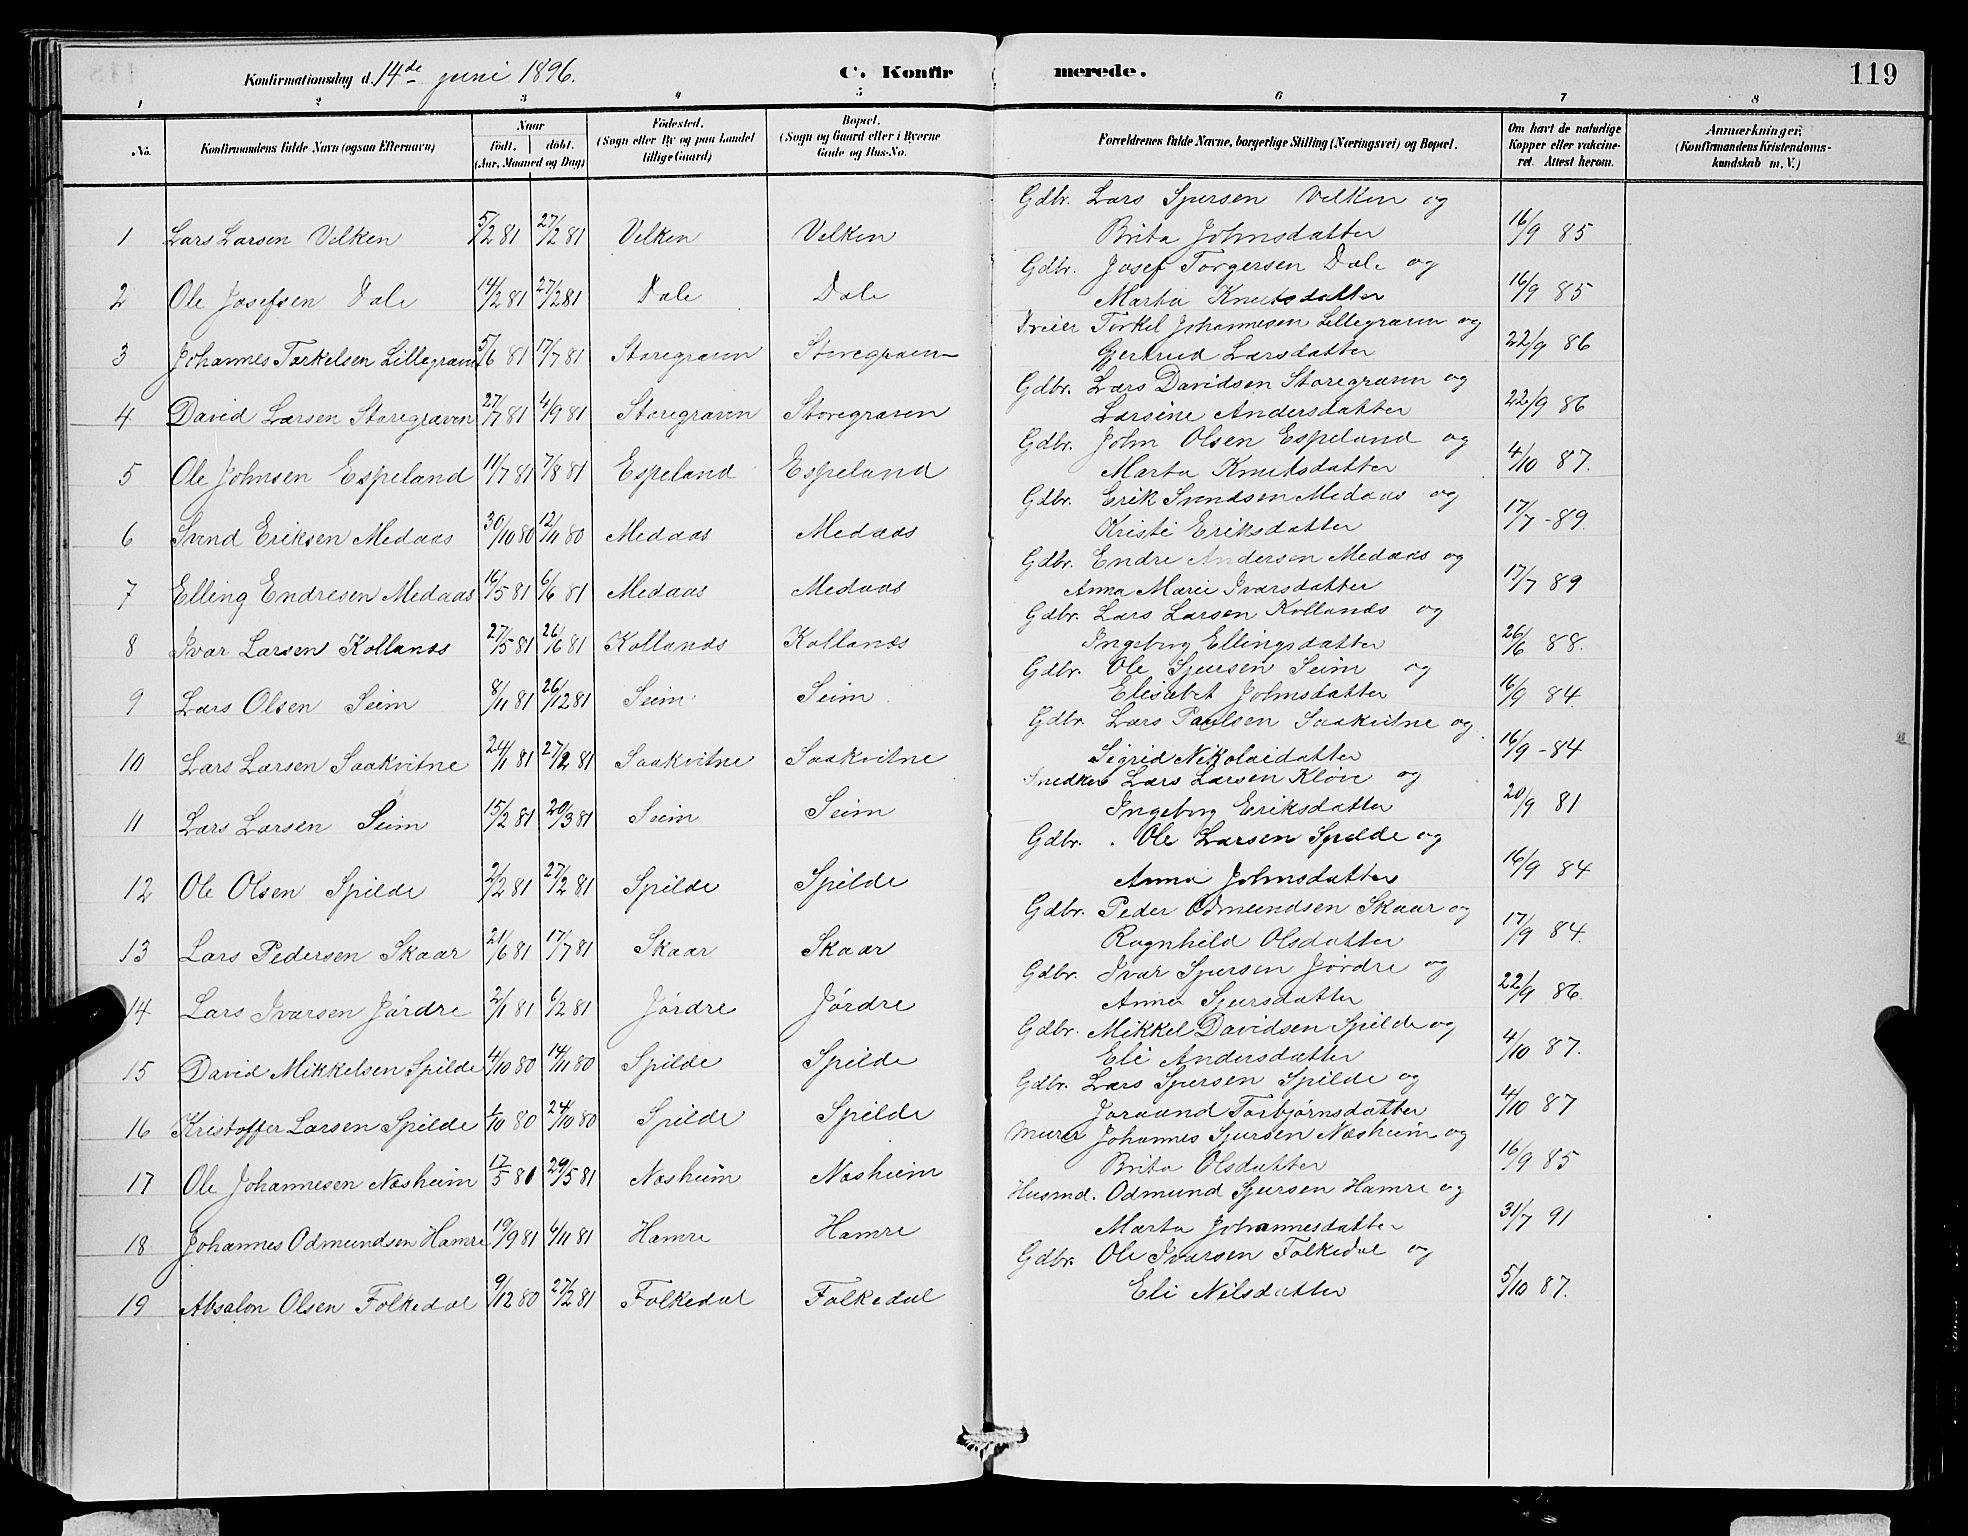 Konfirmationsdag d. 14de juni 1896. C. Konfirmerede. 119
1 2 3 4 5 6 7 8
No. Konfirmandens fulde Navn (ogsaa Efternavn) Naar Födt. döbt. (Aar, Maaned og Dag) Födested. (Sogn eller By og paa Landet tillige Gaard) Bopæl. (Sogn og Gaard eller i Byerne Gade og Hus-No. Forældrenes fulde Navne, borgerlige Stilling (Næringsvei) og Bopæl. Om havt de naturlige Kopper eller vakcineret. Attest herom. Anmærkninger. (Konfirmandens Kristendomskundskab m. V.)
1 Lars Larsen Velken 5/2 81 27/2 81 Velken Velken Gdbr. Lars Sjursen Velken og
Brita Johnsdatter 16/9 85
2 Ole Josefsen Dale 14/2 81 27/2 81 Dale Dale Gdbr. Josef Torgersen Dale og
Marta Knutsdatter 16/9 85
3 Johannes Torkelsen Lillegraven 5/6 81 17/7 81 Storegraven Storegraven Torkel Johannesen Lillegraven og
Gjertrud Larsdatter 22/9 86
4 David Larsen Storegraven 27/7 81 4/9 81 Storegraven Storegraven Gdbr. Lars Davidsen Storegraven og
Larsine Andersdatter 22/9 86
5 Ole Johnsen Espeland 11/7 81 7/8 81 Espeland Espeland Gdbr. John Olsen Espeland og
Marta Knutsdatter 4/10 87.
6 Svend Eriksen Medaas 30/10 80 12/11 80 Medaas Medaas Gdbr. Erik Svendsen Medaas og
Kristi Eriksdatter 17/7 - 89.
7 Elling Endresen Medaas 16/5 81 6/6 81 Medaas Medaas Gdbr. Endre Andersen Medaas og
Anna Marie Ivarsdatter 17/7 89
8 Ivar Larsen Kollanæs 27/5 81 26/6 81 Kollanæs Kollanæs Gdbr. Lars Larsen Kollanæs og
Ingeborg Ellingsdatter 26/6 88.
9 Lars Olsen Seim 8/11 81 26/12 81 Seim Seim Gdbr. Ole Sjursen Seim og
Elisabet Johnsdatter 16/9 84.
10 Lars Larsen Saakvitne 24/1 81 27/2 81 Saakvitne Saakvitne Gdbr. Lars Paulsen Saakvitne og
Sigrid Nikolaidatter 16/9 - 84
11 Lars Larsen Seim 15/2 81 20/3 81 Seim Seim Snedker Lars Larsen Kløve og
Ingeborg Eriksdatter 20/9 81
12 Ole Olsen Spilde 2/2 81 27/2 81 Spilde Spilde Gdbr. Ole Larsen Spilde og
Anna Johnsdatter 16/9 84
13 Lars Pedersen Skaar 21/6 81 17/7 81 Skaar Skaar Gdbr. Peder Odmundsen Skaar og
Ragnhild Olsdatter 17/9 84.
14 Lars Ivarsen Jørdre 2/1 81 6/2 81 Jørdre Jørdre Gdbr. Ivar Sjursen Jørdre og
Anna Sjursdatter 22/9 86.
15 David Mikkelsen Spilde 4/10 80 14/11 80 Spilde Spilde Gdbr. Mikkel Davidsen Spilde og
Eli Andersdatter 4/10 87.
16 Kristoffer Larsen Spilde 1/10 80 24/10 80 Spilde Spilde Gdbr. Lars Sjursen Spilde og
Torbjørnsdatter 4/10 87
17 Ole Johannesen Næsheim 17/5 81 29/5 81 Næsheim Næsheim Murer Johannes Sjursen Næsheim og
Brita Olsdatter 16/9 85
18 Johannes Odmundsen Hamre 19/9 81 6/11 81 Hamre Hamre Husmd. Odmund Sjursen Hamre og
Marta Johannesdatter 31/7 91
19 Absalon Olsen Folkedal 9/12 80 27/2 81 Folkedal Folkedal Gdbr. Ole Ivarsen Folkedal og
Eli Nilsdatter 5/10 87.